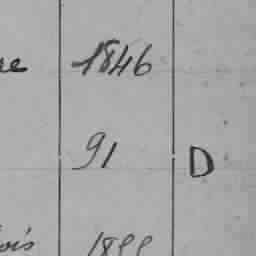 re 1846
91 D
ois 1899